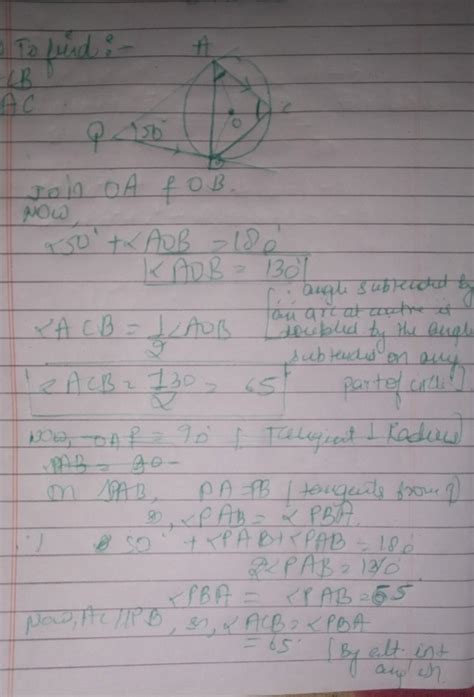 To find :-
∠B
AC
A
C
O
Q 50°
B
Join OA & OB.
Now,
∠50° + ∠AOB = 180°
∠AOB = 130°
∠ACB = 1/2 ∠AOB
[∵ angle subtended by
an arc at centre is
doubled by the angle
subtended on any
part of circle]
∠ACB = 130/2 = 65°
Now, OAP = 90° [Tangent ⊥ Radius]
PAB = 90-
In PAB, PA=PB [tangents from
so, ∠PAB = ∠PBA.
50° + ∠PAB + ∠PAB = 180°
2∠PAB = 130°
∠PBA = ∠PAB = 65
Now, AC//PB, so, ∠ACB = ∠PBA
= 65° [By alt. int